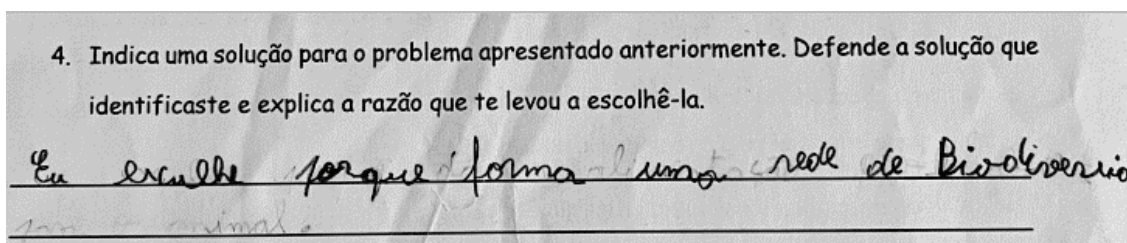 4. Indica uma solução para o problema apresentado anteriormente. Defende a solução que
identificaste e explica a razão que te levou a escolhê-la.
Eu esculhe porque forma uma rede de Biodiversid